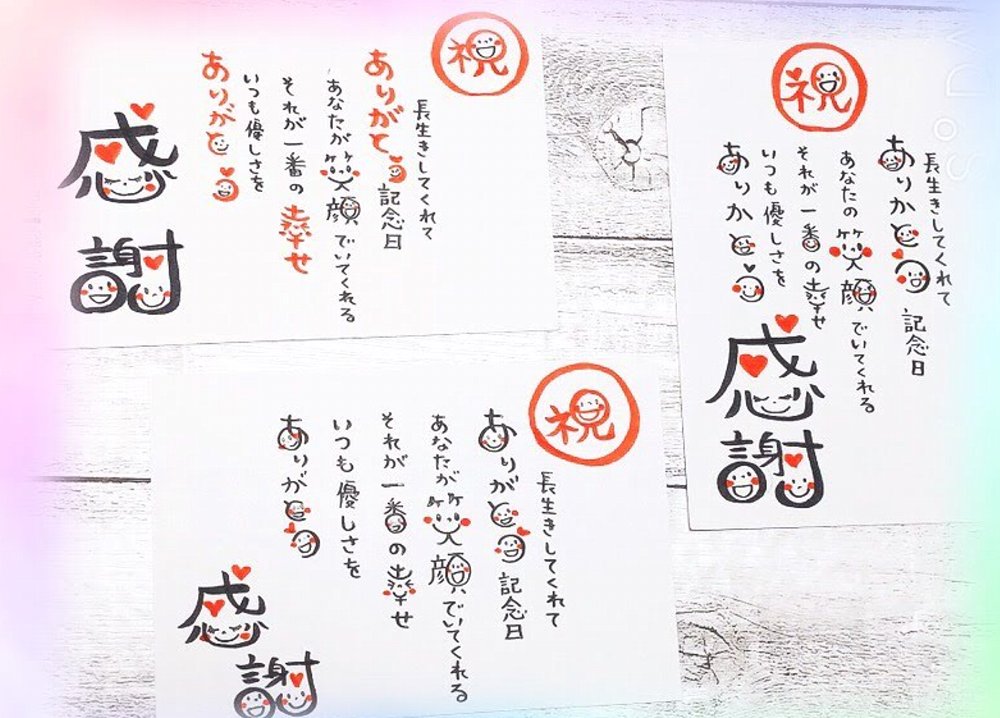 祝
長生きしてくれて
ありがとう記念日
あなたが笑顔でいてくれる
それが一番の幸せ
いつも優しさを
ありがとう
感謝
祝
長生きしてくれて
ありがとう記念日
あなたの笑顔でいてくれる
それが一番の幸せ
いつも優しさを
ありがとう
感謝
祝
長生きしてくれて
ありがとう記念日
あなたが笑顔でいてくれる
それが一番の幸せ
いつも優しさを
ありがとう
感謝